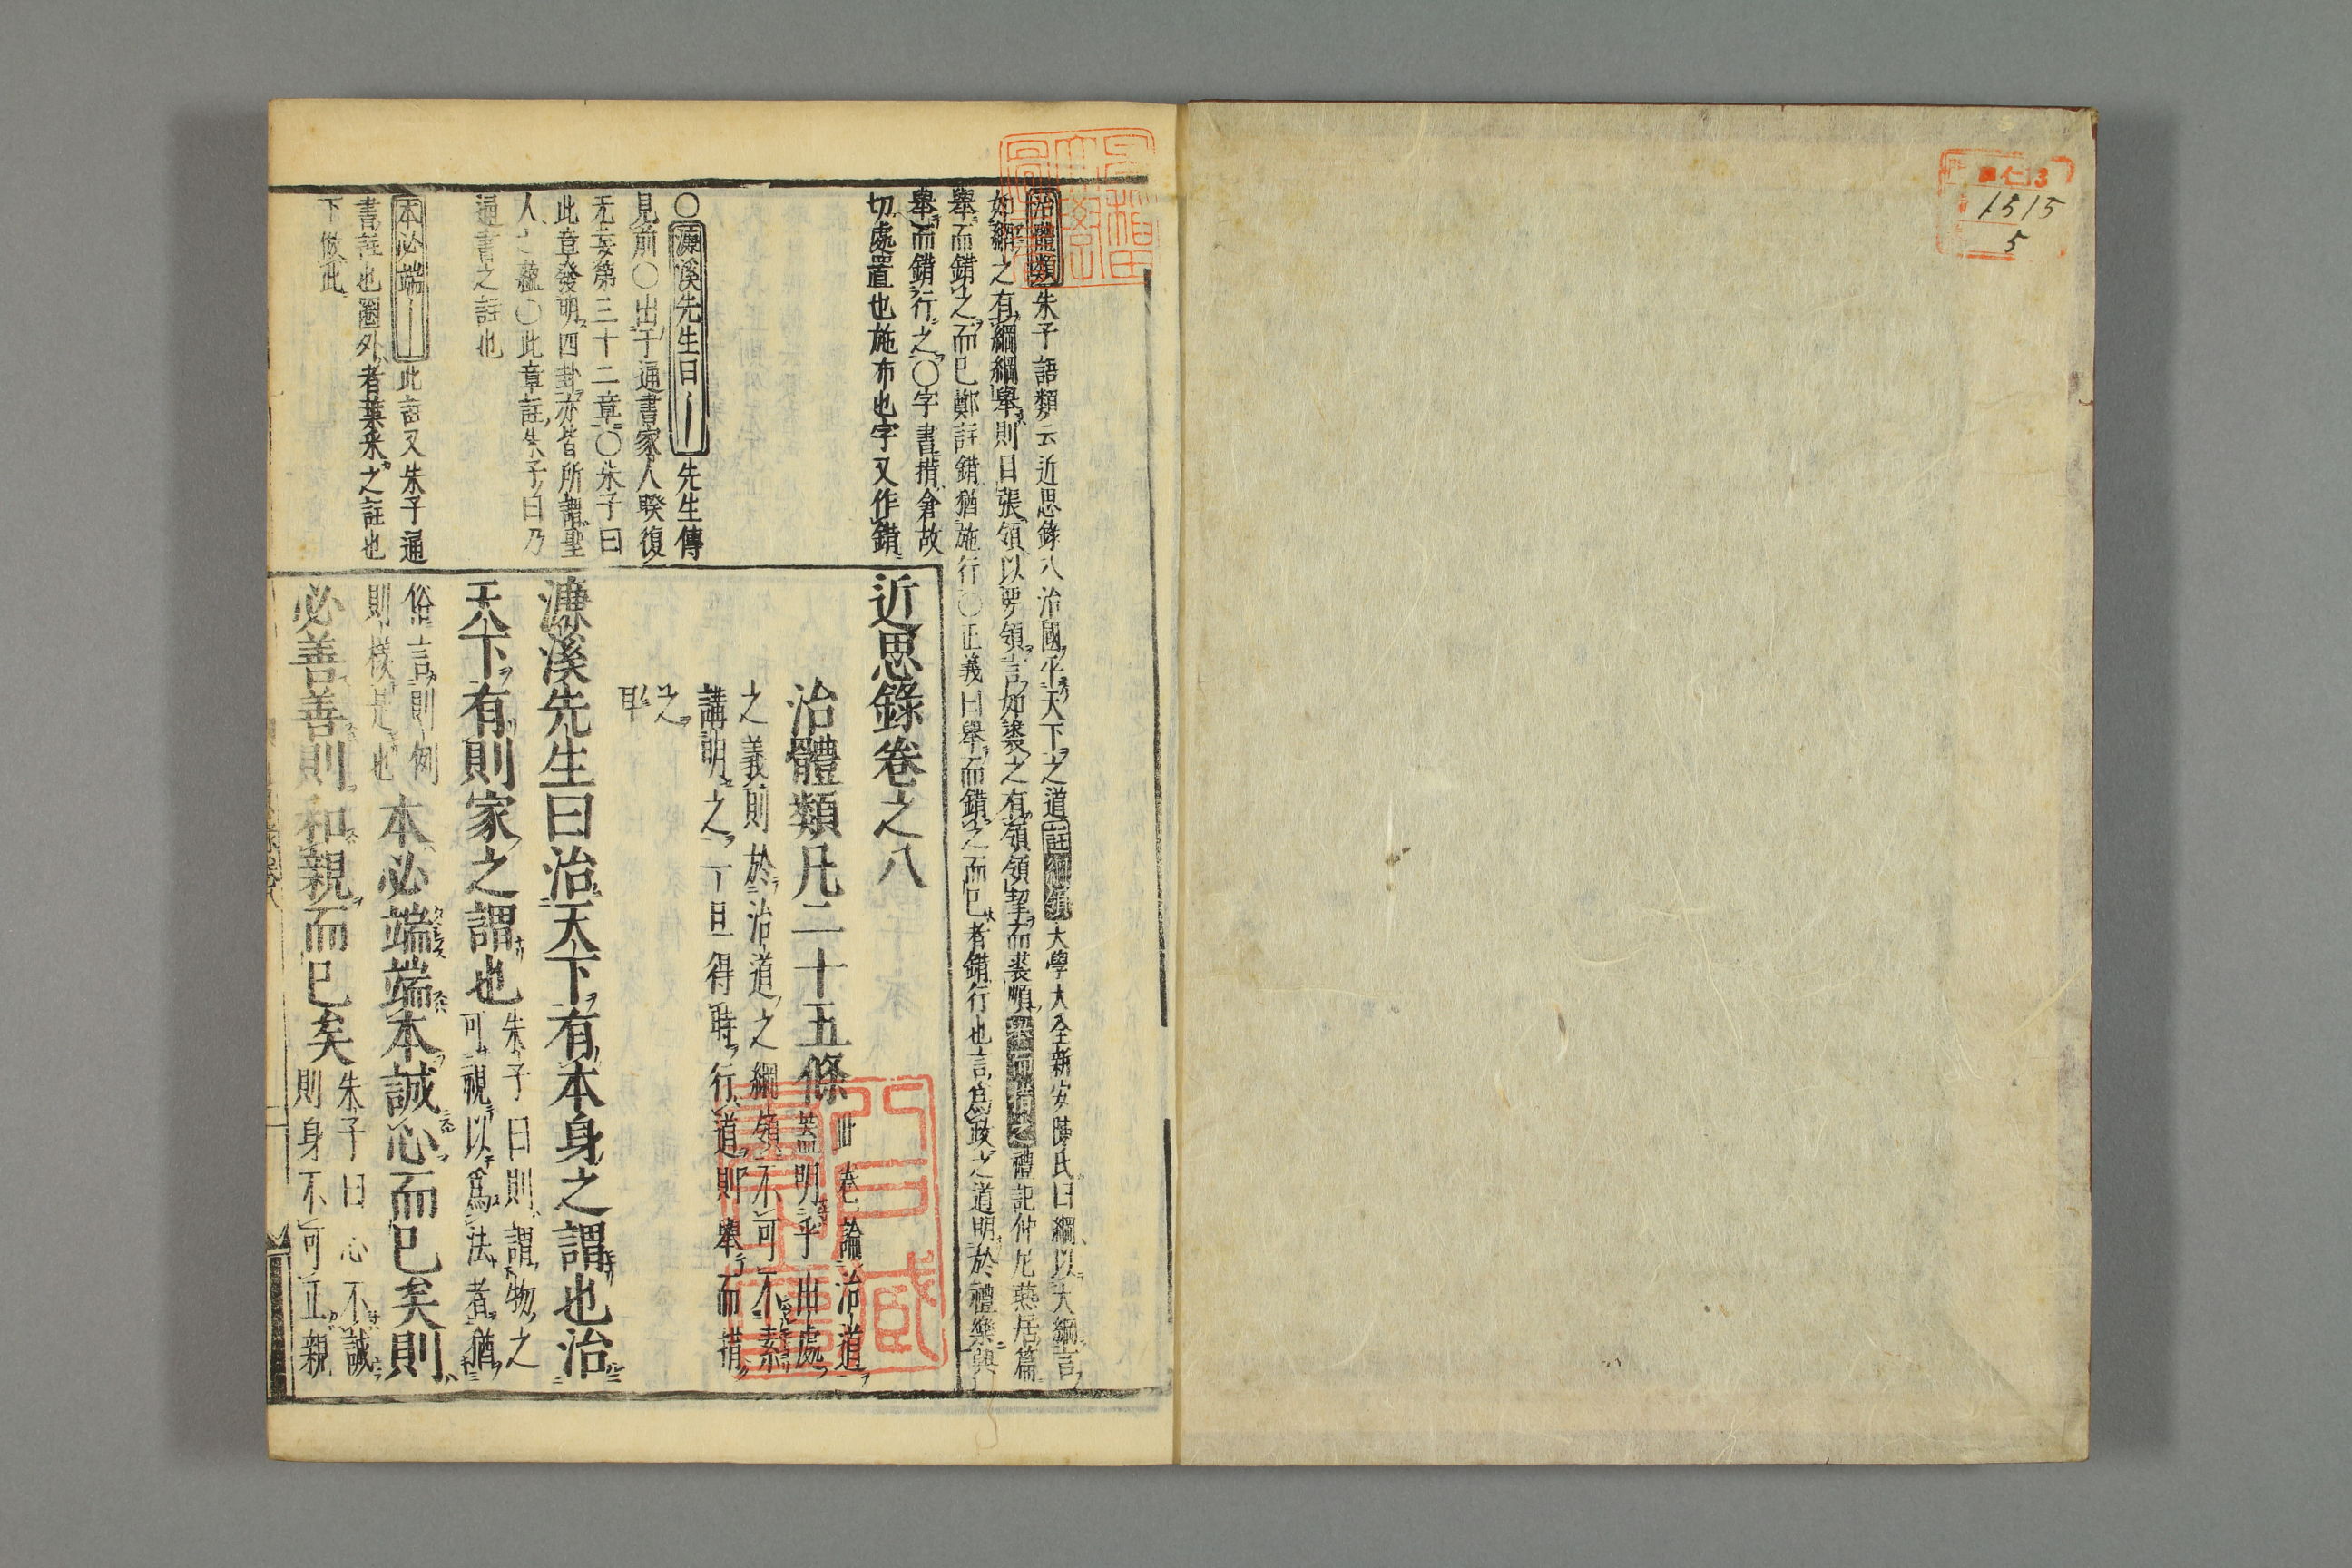 仁
13
1515
5
治體類 朱子語類云近思錄八治國平天下之道 註綱領 大學大全新安陳氏曰綱以大綱言
如網之有綱綱舉則目張領以要領言如裘之有領領挈而裘順 舉而措之 禮記仲尼燕居篇
舉而錯之而已鄭註錯猶施行○正義曰舉而錯之而已者錯行也言爲政之道明於禮樂與
舉而錯行之○字書措倉故
切處置也施布也字又作錯
○濂溪先生曰 先生傳
見前○出于通書家人睽復
无妄第三十二章○朱子曰
此章發明四卦亦皆所謂聖
人之蘊○此章註朱子曰乃
通書之註也
本必端 此註又朱子通
書註也圈外者葉采之註也
下倣此
近思錄卷之八
治體類凡二十五條 此卷論治道
蓋明乎出處
之義則於治道之綱領不可不素
講明之一旦得時行道則舉而措
之耳
濂溪先生曰治天下有本身之謂也治
天下有則家之謂也 朱子曰則謂物之
可視以爲法者猶
俗言則例
則樣是也 本必端端本誠心而已矣則
必善善則和親而已矣 朱子曰心不誠
則身不可正親